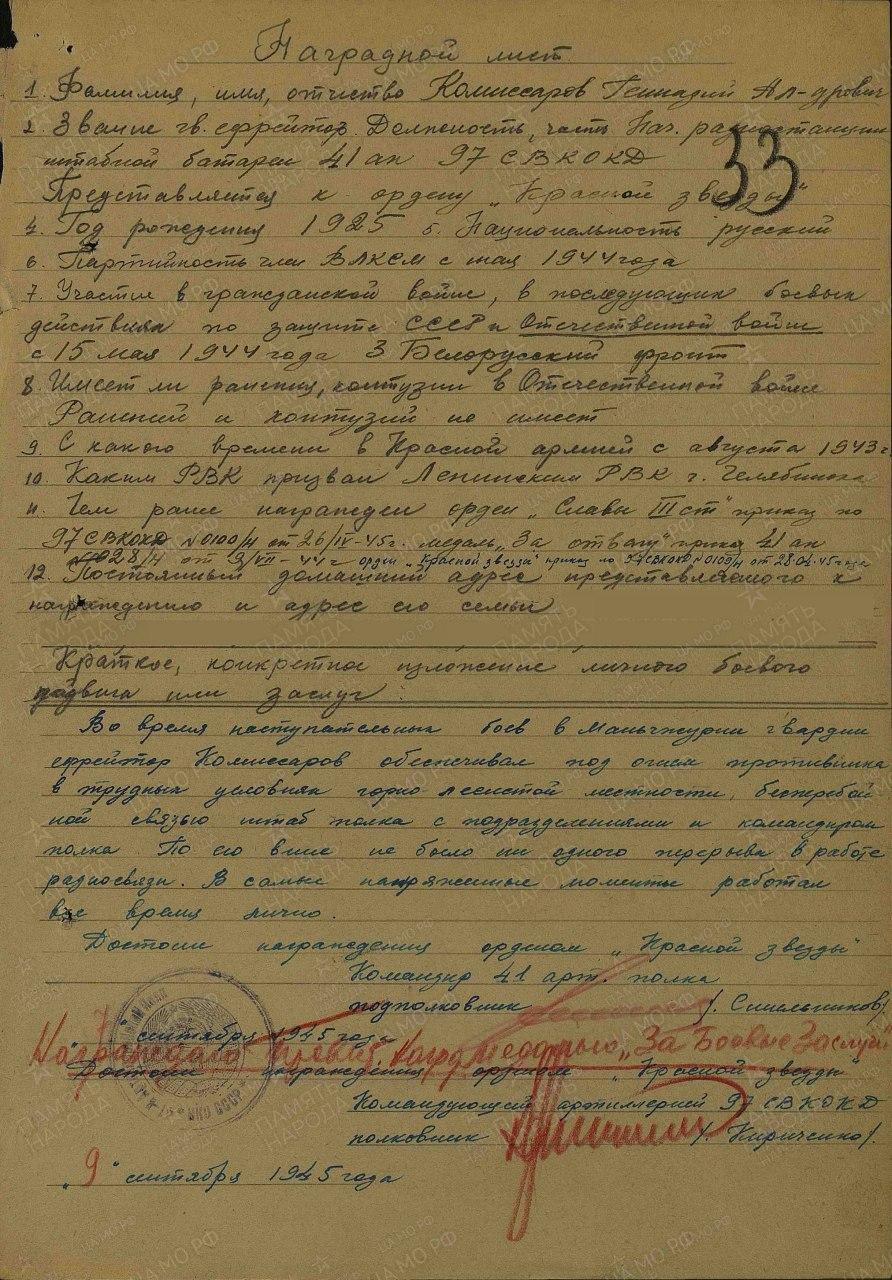 Наградной лист
1. Фамилия, имя, отчество Комиссаров Геннадий Ал-дрович
2. Звание гв. ефрейтор. Должность, часть Нач. радиостанции
штабной батареи 41 ап 97 СВКОКД
33
Представляется к ордену „Красной звезды"
4. Год рождения 1925 5. Национальность русский
6. Партийность член ВЛКСМ с мая 1944 года
7. Участие в гражданской войне, в последующих боевых
действиях по защите СССР и Отечественной войне
с 15 мая 1944 года 3 Белорусский фронт
8. Имеет ли ранения, контузии в Отечественной войне
Ранений и контузий не имеет
9. С какого времени в Красной армией с августа 1943 г
10. Каким РВК призван Ленинским РВК г. Челябинска
11. Чем ранее награжден орден „Славы III ст" приказ по
97 СВКОКД №0100/н от 26/IV-45г. медаль „За отвагу" приказ 41 ап
№028/н от 9/VII-44г орден „Красной звезды" приказ по 97 СВКОКД №0109/н от 28.04.45 года
12. Постоянный домашний адрес представляемого к
награждению и адрес его семьи
Краткое, конкретное изложение личного боевого
подвига или заслуг:
Во время наступательных боев в Маньчжурии гвардии
ефрейтор Комиссаров обеспечивал под огнем противника
в трудных условиях горно-лесистой местности, бесперебой
ной связью штаб полка с подразделениями и командиром
полка По его вине не было ни одного перерыва в работе
радиосвязи. В самые напряженные моменты работал
все время лично.
Достоин награждения орденом „Красной звезды"
Командир 41 арт. полка
подполковник /. Синельников/
„7" сентября 1945 года
медалью „За Боевые Заслуги"
Достоин награждения орденом „Красной звезды"
Командующий артиллерией 97 СВКОКД
полковник /. Кириченко/.
„9" сентября 1945 года